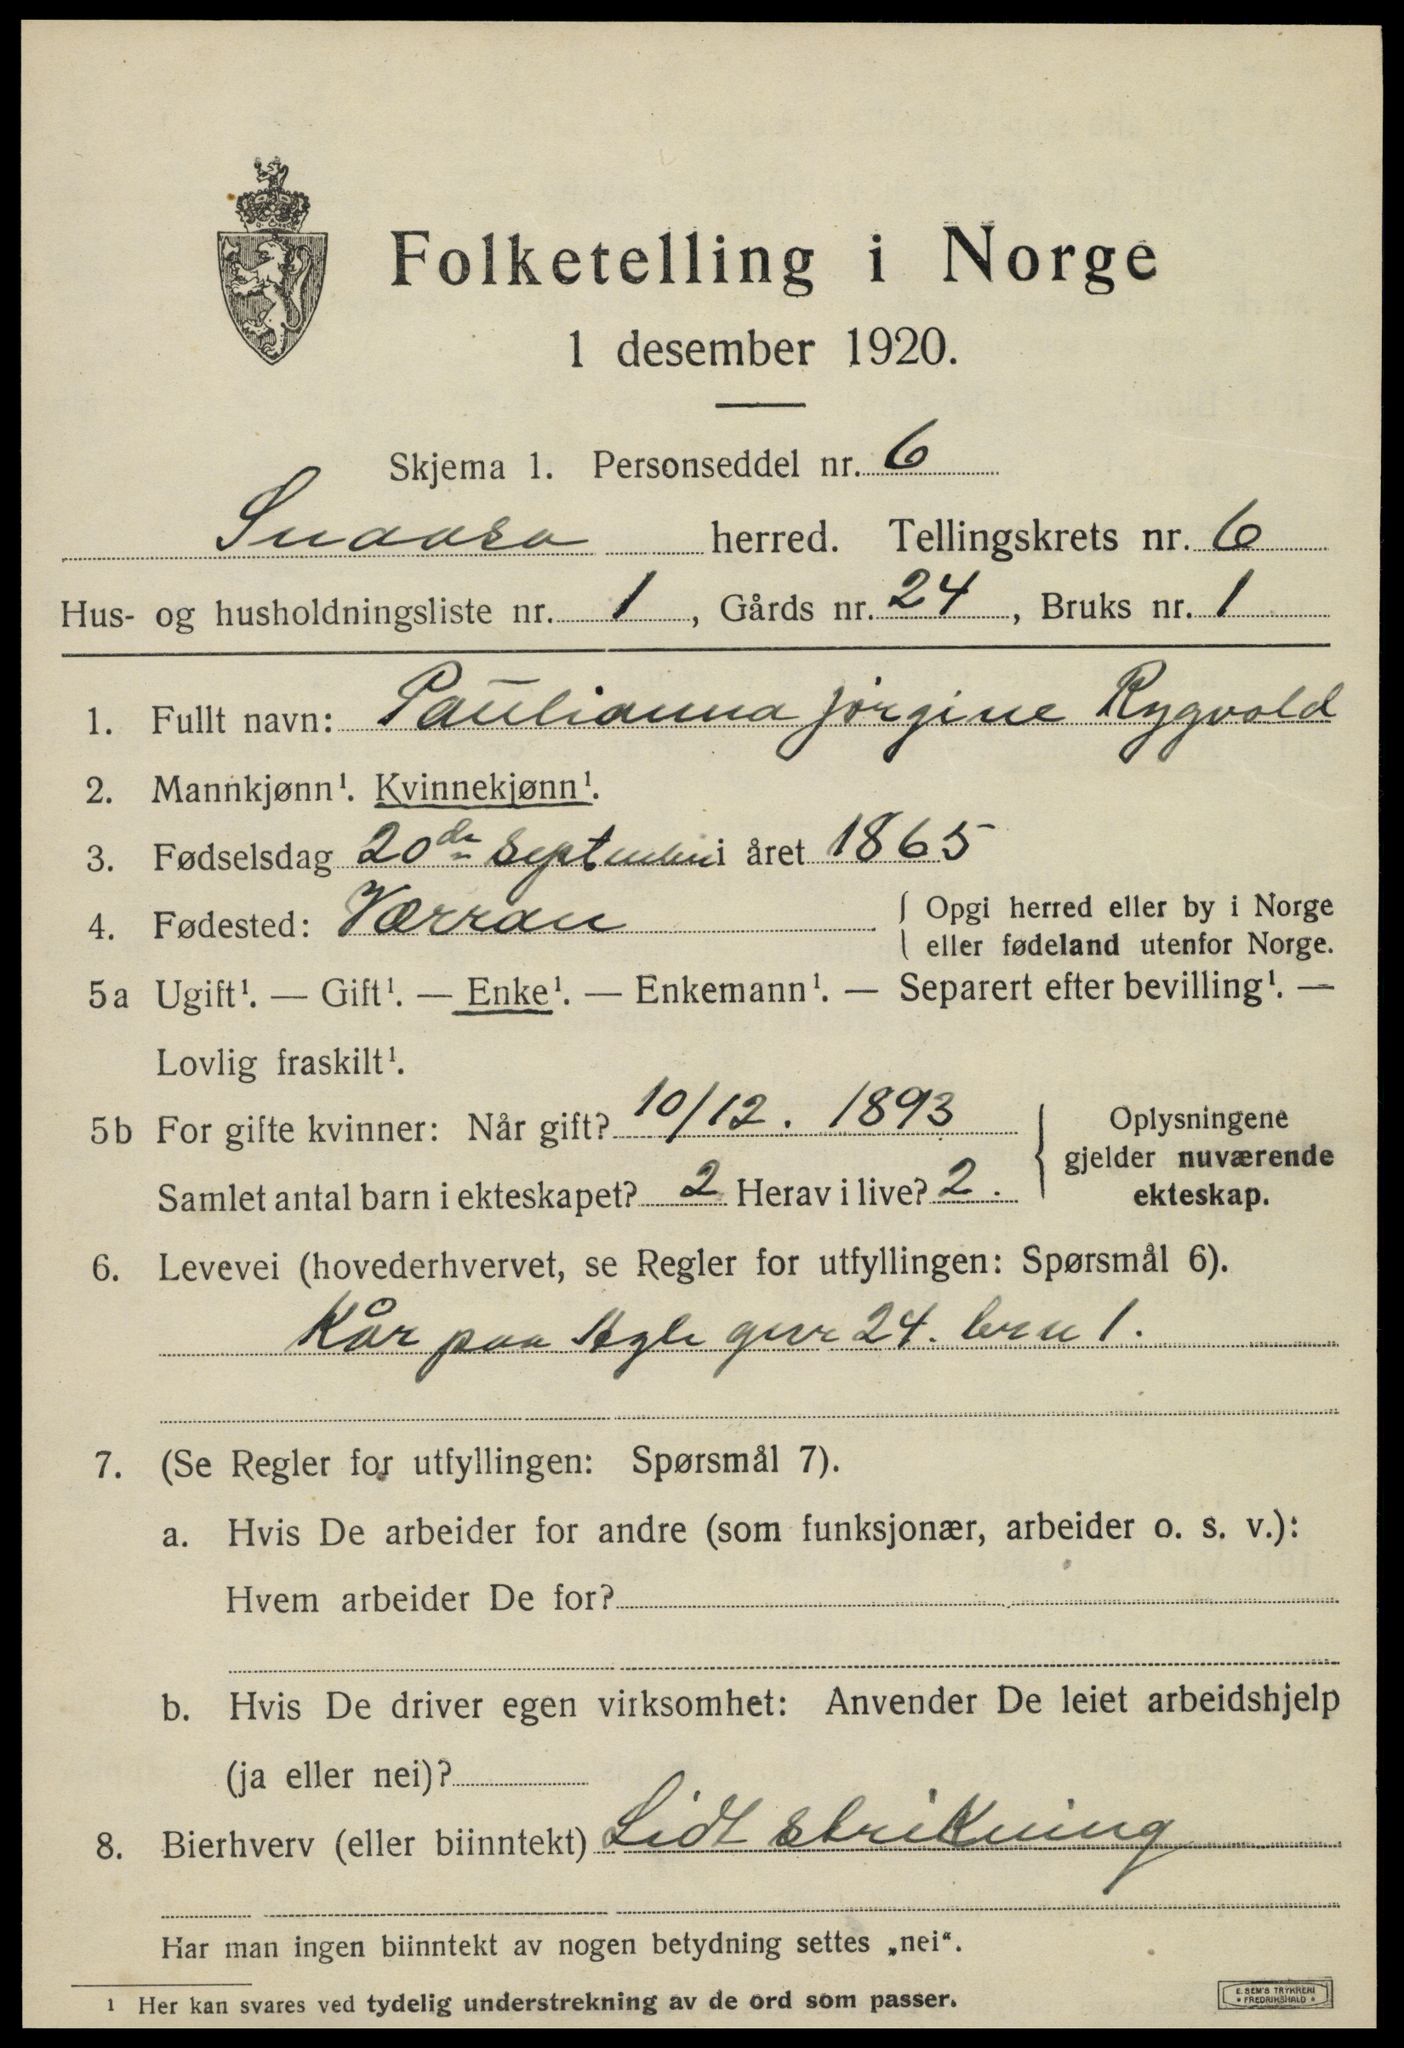 Folketelling i Norge
1 desember 1920.
Skjema 1. Personseddel nr. 6
Snaasa herred. Tellingskrets nr. 6
Hus- og husholdningsliste nr. 1, Gårds nr. 24, Bruks nr. 1
1. Fullt navn: Paulianna Jørgine Rygvold
2. Mannkjønn¹. Kvinnekjønn¹.
3. Fødselsdag 20de September i året 1865
4. Fødested: Værran { Opgi herred eller by i Norge
eller fødeland utenfor Norge.
5a Ugift¹. — Gift¹. — Enke¹. — Enkemann¹. — Separert efter bevilling¹. —
Lovlig fraskilt¹.
5b For gifte kvinner: Når gift? 10/12. 1893
Samlet antal barn i ekteskapet? 2 Herav i live? 2.
Oplysningene
gjelder nuværende
ekteskap.
6. Levevei (hovederhvervet, se Regler for utfyllingen: Spørsmål 6).
Kår paa Agle gnr 24. brn 1.
7. (Se Regler for utfyllingen: Spørsmål 7).
a. Hvis De arbeider for andre (som funksjonær, arbeider o. s. v.):
Hvem arbeider De for?
b. Hvis De driver egen virksomhet: Anvender De leiet arbeidshjelp
(ja eller nei)?
8. Bierhverv (eller biinntekt) Lidt strikning
Har man ingen biinntekt av nogen betydning settes „nei“.
¹ Her kan svares ved tydelig understrekning av de ord som passer.
E. SEM'S TRYKKERI
• FREDRIKSHALD •